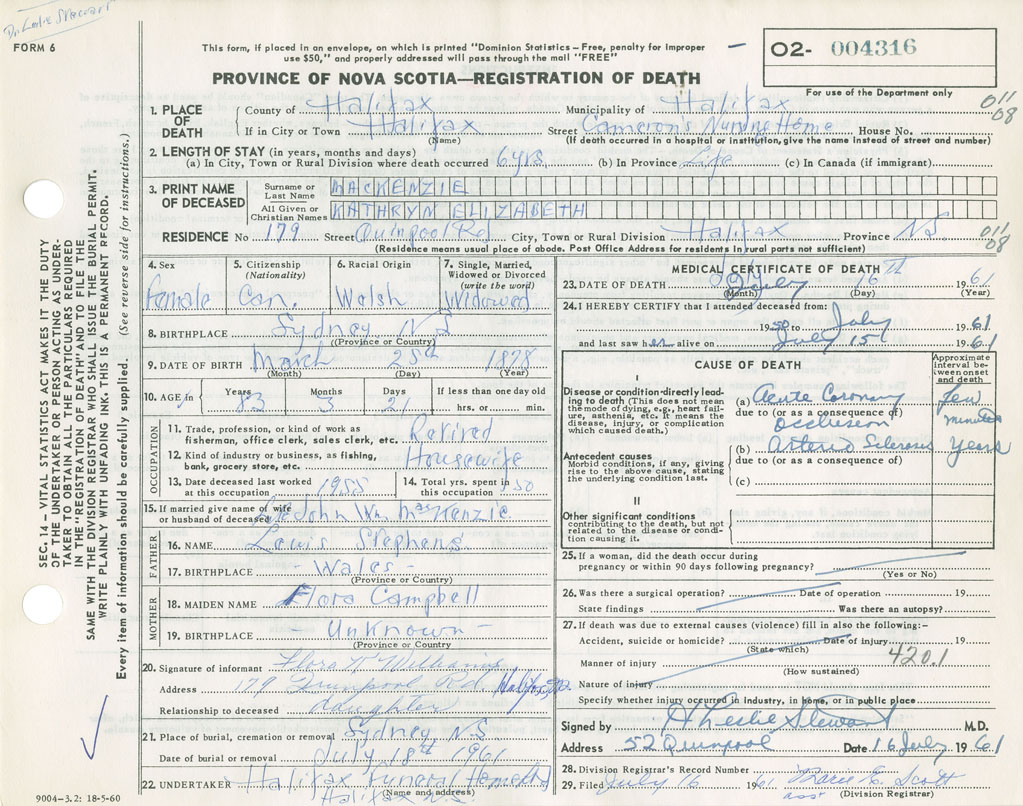 Dr. Leslie Stewart
FORM 6
This form, if placed in an envelope, on which is printed "Dominion Statistics – Free, penalty for improper
use $50," and properly addressed will pass through the mail "FREE"
PROVINCE OF NOVA SCOTIA—REGISTRATION OF DEATH
02- 004316
For use of the Department only
011
08
1. PLACE OF DEATH
County of Halifax Municipality of Halifax
If in City or Town Halifax Street Cameron's Nursing Home House No.
(Name) (If death occurred in a hospital or institution, give the name instead of street and number)
2. LENGTH OF STAY (in years, months and days)
(a) In City, Town or Rural Division where death occurred 6 yrs. (b) In Province Life (c) In Canada (if immigrant)
3. PRINT NAME OF DECEASED
Surname or Last Name MACKENZIE
All Given or Christian Names KATHRYN ELIZABETH
RESIDENCE No 179 Street Quinpool Rd City, Town or Rural Division Halifax Province NS
011
08
(Residence means usual place of abode. Post Office Address for residents in rural parts not sufficient)
4. Sex
female
5. Citizenship (Nationality)
Can.
6. Racial Origin
Welsh
7. Single, Married, Widowed or Divorced (write the word)
Widowed
8. BIRTHPLACE Sydney NS
(Province or Country)
9. DATE OF BIRTH March 25th 1878
(Month) (Day) (Year)
10. AGE in Years 83 Months 3 Days 21 If less than one day old hrs. or min.
OCCUPATION
11. Trade, profession, or kind of work as fisherman, office clerk, sales clerk, etc. Retired
12. Kind of industry or business, as fishing, bank, grocery store, etc. Housewife
13. Date deceased last worked at this occupation 1955
14. Total yrs. spent in this occupation 50
15. If married give name of wife or husband of deceased John Wm. MacKenzie
FATHER
16. NAME Lewis Stephens
17. BIRTHPLACE - Wales -
(Province or Country)
MOTHER
18. MAIDEN NAME Flora Campbell
19. BIRTHPLACE - Unknown -
(Province or Country)
20. Signature of informant Flora Williams
Address 179 Quinpool Rd. Halifax
Relationship to deceased daughter
21. Place of burial, cremation or removal Sydney N.S
Date of burial or removal July 18th 1961
22. UNDERTAKER Halifax Funeral Home Ltd
(Name and address)
Halifax N.S.
MEDICAL CERTIFICATE OF DEATH
23. DATE OF DEATH July 16th 1961
(Month) (Day) (Year)
24. I HEREBY CERTIFY that I attended deceased from:
1950 to July 1961
and last saw her alive on July 15 1961
CAUSE OF DEATH
Approximate interval between onset and death
I
Disease or condition directly leading to death (This does not mean the mode of dying, e.g., heart failure, asthenia, etc. It means the disease, injury, or complication which caused death.)
(a) Acute Coronary few
due to (or as a consequence of) occlusion minutes
Antecedent causes
Morbid conditions, if any, giving rise to the above cause, stating the underlying condition last.
(b) Arterio Sclerosis years
due to (or as a consequence of)
(c)
II
Other significant conditions
contributing to the death, but not related to the disease or condition causing it.
25. If a woman, did the death occur during
pregnancy or within 90 days following pregnancy?
(Yes or No)
26. Was there a surgical operation? Date of operation 19
State findings Was there an autopsy?
27. If death was due to external causes (violence) fill in also the following:–
Accident, suicide or homicide? Date of injury 19
(State which)
Manner of injury 420.1
(How sustained)
Nature of injury
Specify whether injury occurred in industry, in home, or in public place
Signed by H Leslie Stewart M.D.
Address 52 Quinpool Date 16 July 1961
28. Division Registrar's Record Number
29. Filed July 16 1961 Marie E. Scott
asst (Division Registrar)
SEC. 14 – VITAL STATISTICS ACT MAKES IT THE DUTY
OF THE UNDERTAKER OR PERSON ACTING AS UNDER-
TAKER TO OBTAIN ALL THE PARTICULARS REQUIRED
IN THE "REGISTRATION OF DEATH" AND TO FILE THE
SAME WITH THE DIVISION REGISTRAR WHO SHALL ISSUE THE BURIAL PERMIT.
WRITE PLAINLY WITH UNFADING INK. THIS IS A PERMANENT RECORD.
Every item of information should be carefully supplied. (See reverse side for instructions.)
9004–3.2: 18-5-60